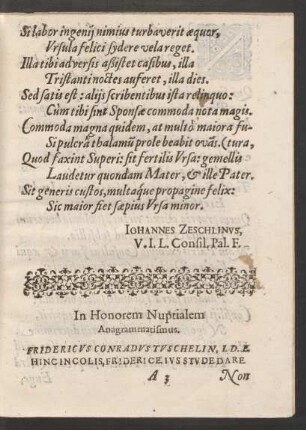 Si labor ingenij nimius turbaverit æquor,
Vrsula felici sydere vela reget.
Illa tibi adversis assistet casibus, illa
Tristanti noctes auferet, illa dies.
Sed satis est: alijs scribentibus ista relinquo:
Cum tibi sint Sponsæ commoda nota magis.
Commoda magna quidem, at multò maiora fu-
Si pulcrâ thalamũ prole beabit ovãs. (tura,
Quod faxint Superi: sit fertilis Vrsa: gemellis
Laudetur quondam Mater, & ille Pater.
Sit generis custos, multaque propagine felix:
Sic maior fiet sæpius Vrsa minor.
IOHANNES ZESCHLINVS,
V. I. L. Consil. Pal. F.
In Honorem Nuptialem
Anagrammatismus.
FRIDERICVS CONRADVS TVSCHELIN, I. D. E.
HINC INCOLIS, FRIDERICE, IVS STVDE DARE.
A 3
Non